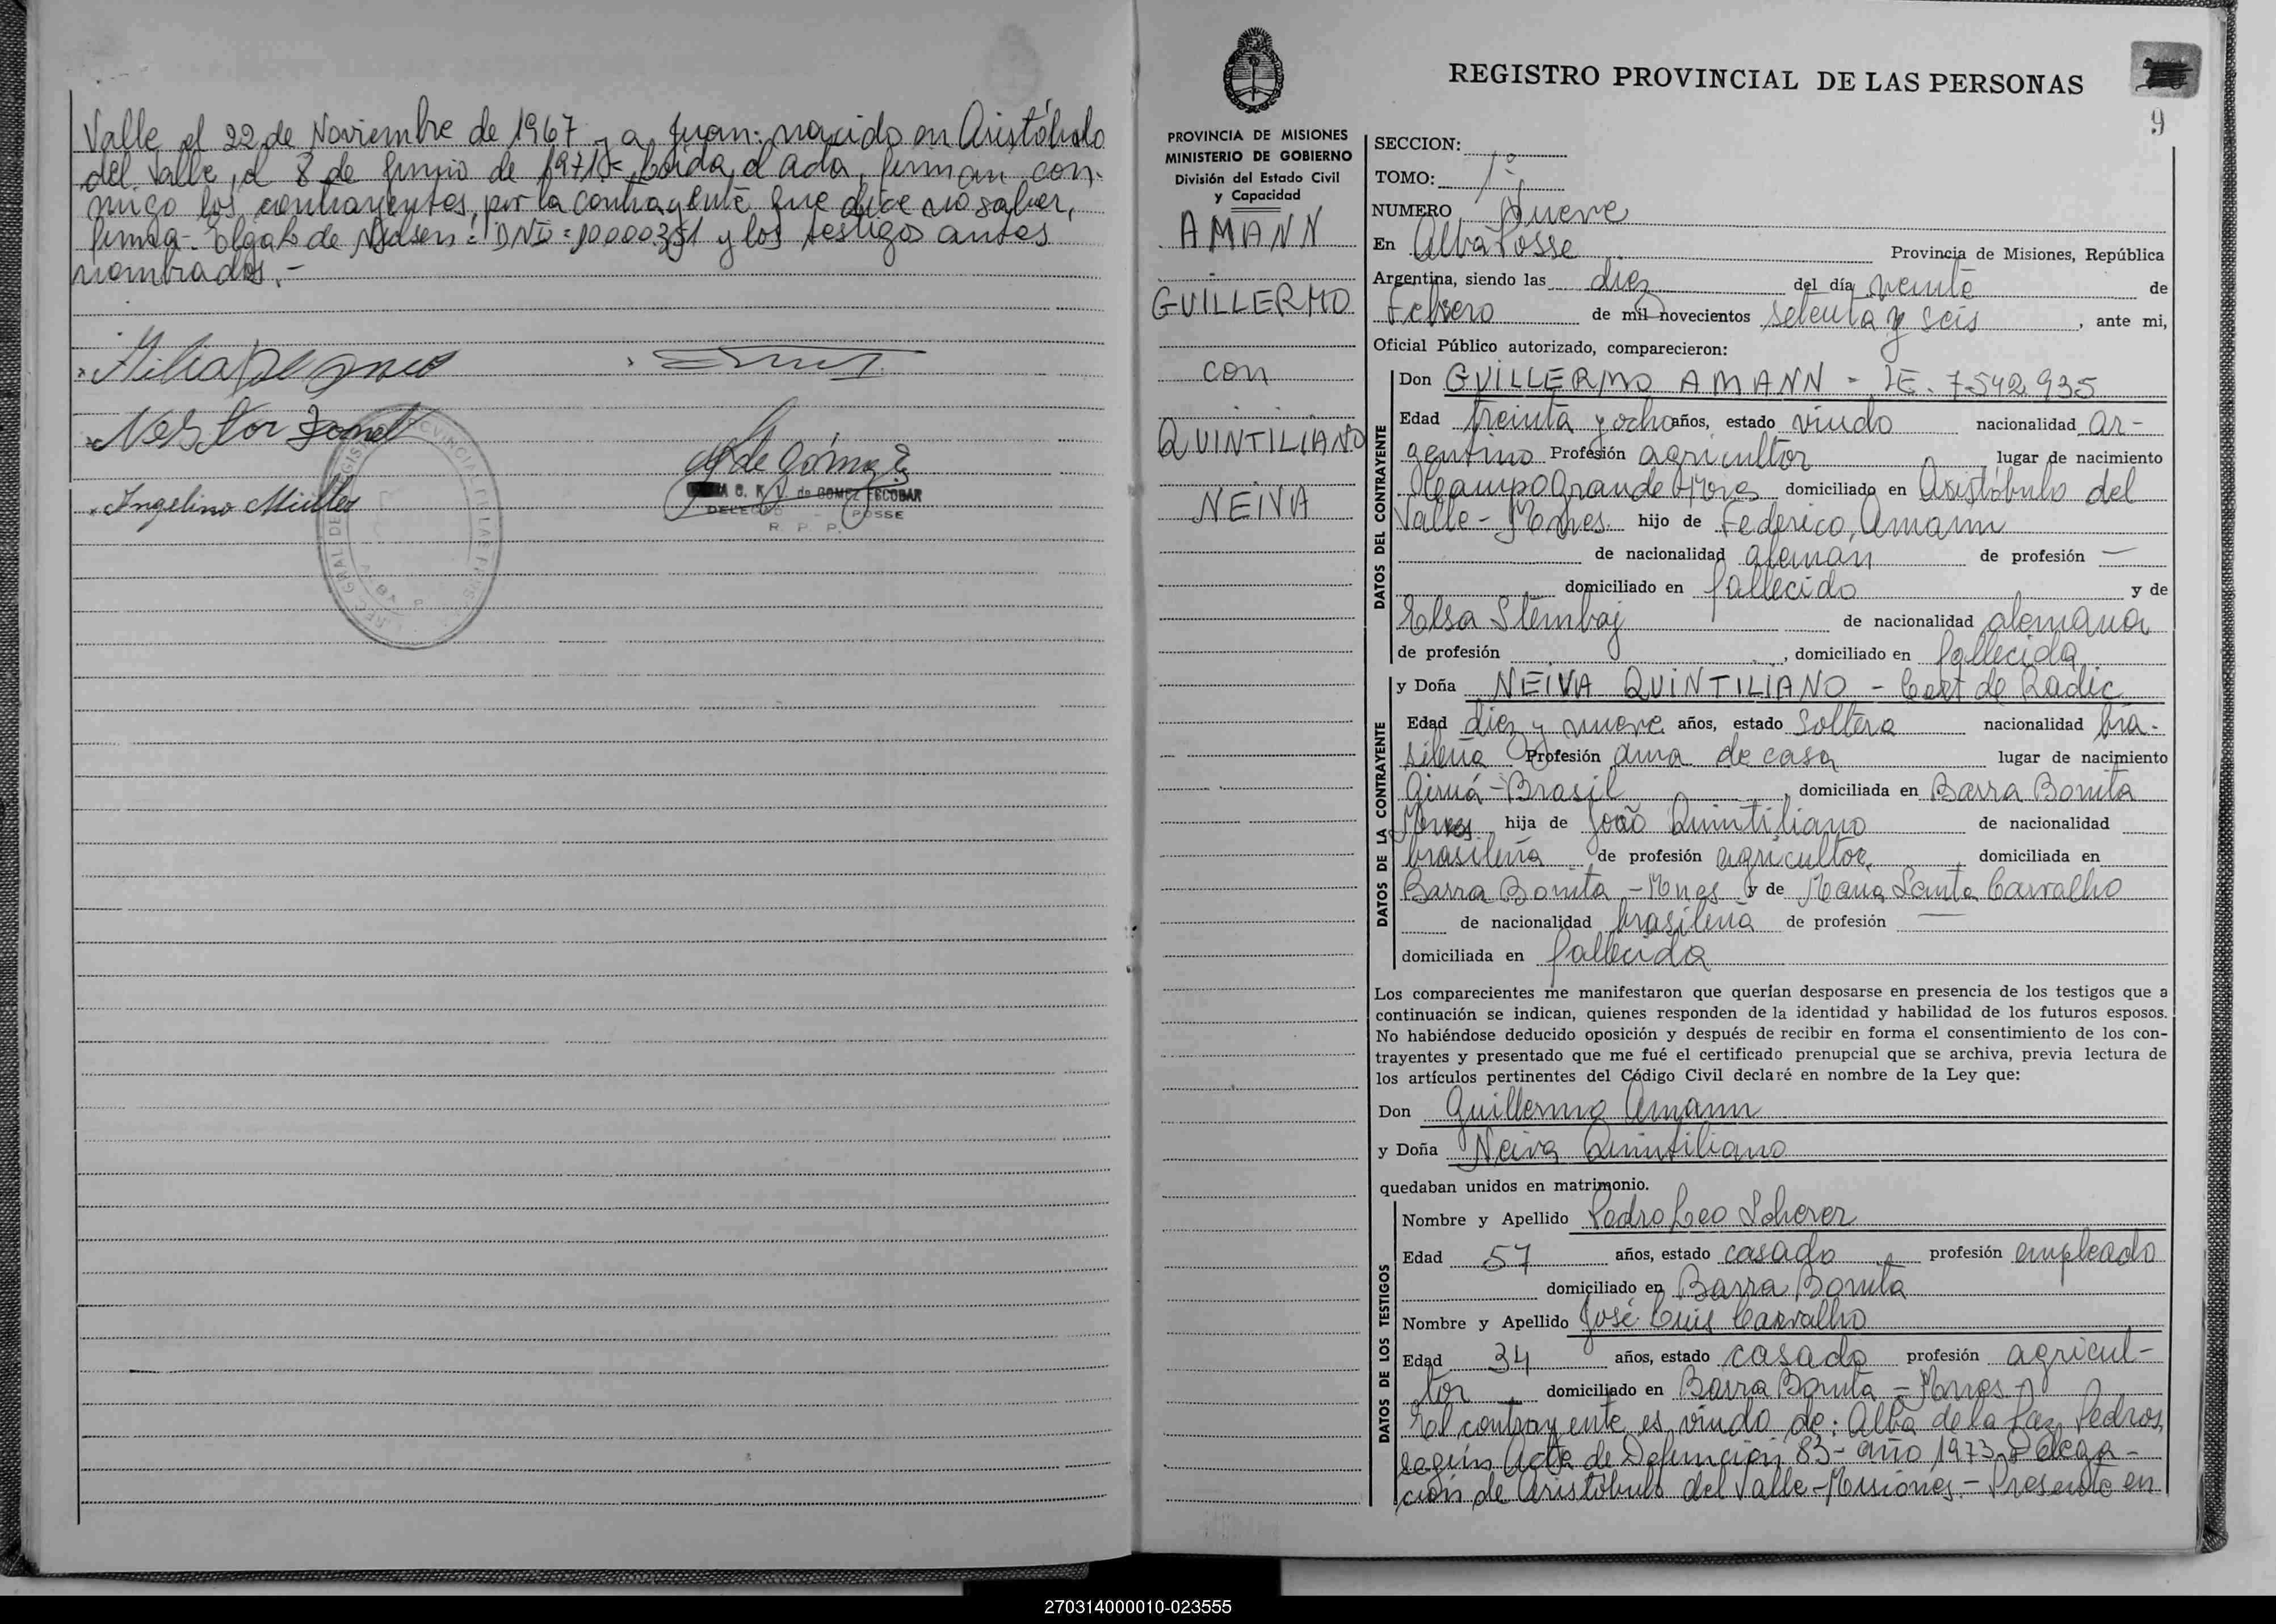 Valle, el 22 de Noviembre de 1967 y a Juan: nacido en Aristóbulo
del Valle, el 8 de Junio de 1971.= Leída el acta, firman con-
migo los contrayentes, por la contrayente que dice no saber,
firma - Olga de : DNI = 10000351 y los testigos antes
nombrados.-
Nestor
de Gómez E
de GOMEZ ESCOBAR
POSSE
R. P. P.
Angelino Müller
REGISTRO PROVINCIAL DE LAS PERSONAS
9
PROVINCIA DE MISIONES
MINISTERIO DE GOBIERNO
División del Estado Civil
y Capacidad
AMANN
GUILLERMO
con
QUINTILIANO
NEIVA
SECCION:
TOMO: 1º
NUMERO Nueve
En Alba Posse Provincia de Misiones, República
Argentina, siendo las diez del día veinte de
Febrero de mil novecientos setenta y seis, ante mi,
Oficial Público autorizado, comparecieron:
DATOS DEL CONTRAYENTE
Don GUILLERMO AMANN - LE. 7.542.935
Edad treinta y ocho años, estado viudo nacionalidad ar-
gentino Profesión agricultor lugar de nacimiento
Campo Grande Mnes domiciliado en Aristóbulo del
Valle - Mnes. hijo de Federico Amann
de nacionalidad alemán de profesión —
domiciliado en fallecido y de
Elsa Stembaj de nacionalidad alemana
de profesión , domiciliado en fallecida
DATOS DE LA CONTRAYENTE
y Doña NEIVA QUINTILIANO - Cert de Radic
Edad diez y nueve años, estado soltera nacionalidad bra-
sileña Profesión ama de casa lugar de nacimiento
Giruá - Brasil , domiciliada en Barra Bonita
Mnes hija de João Quintiliano de nacionalidad
brasileña de profesión agricultor, domiciliada en
Barra Bonita - Mnes y de Maria Santa Carvalho
de nacionalidad brasileña de profesión —
domiciliada en fallecida
Los comparecientes me manifestaron que querían desposarse en presencia de los testigos que a
continuación se indican, quienes responden de la identidad y habilidad de los futuros esposos.
No habiéndose deducido oposición y después de recibir en forma el consentimiento de los con-
trayentes y presentado que me fué el certificado prenupcial que se archiva, previa lectura de
los artículos pertinentes del Código Civil declaré en nombre de la Ley que:
Don Guillermo Amann
y Doña Neiva Quintiliano
quedaban unidos en matrimonio.
DATOS DE LOS TESTIGOS
Nombre y Apellido Pedro Leo Scherer
Edad 57 años, estado casado profesión empleado
domiciliado en Barra Bonita
Nombre y Apellido José Luis Carvalho
Edad 34 años, estado casado profesión agricul-
tor domiciliado en Barra Bonita - Mnes -
El contrayente es viudo de: Alba de la Paz Pedros,
según Acta de Defunción 83 - año 1973 - Delega-
ción de Aristóbulo del Valle - Misiones. - Presente en
270314000010-023555